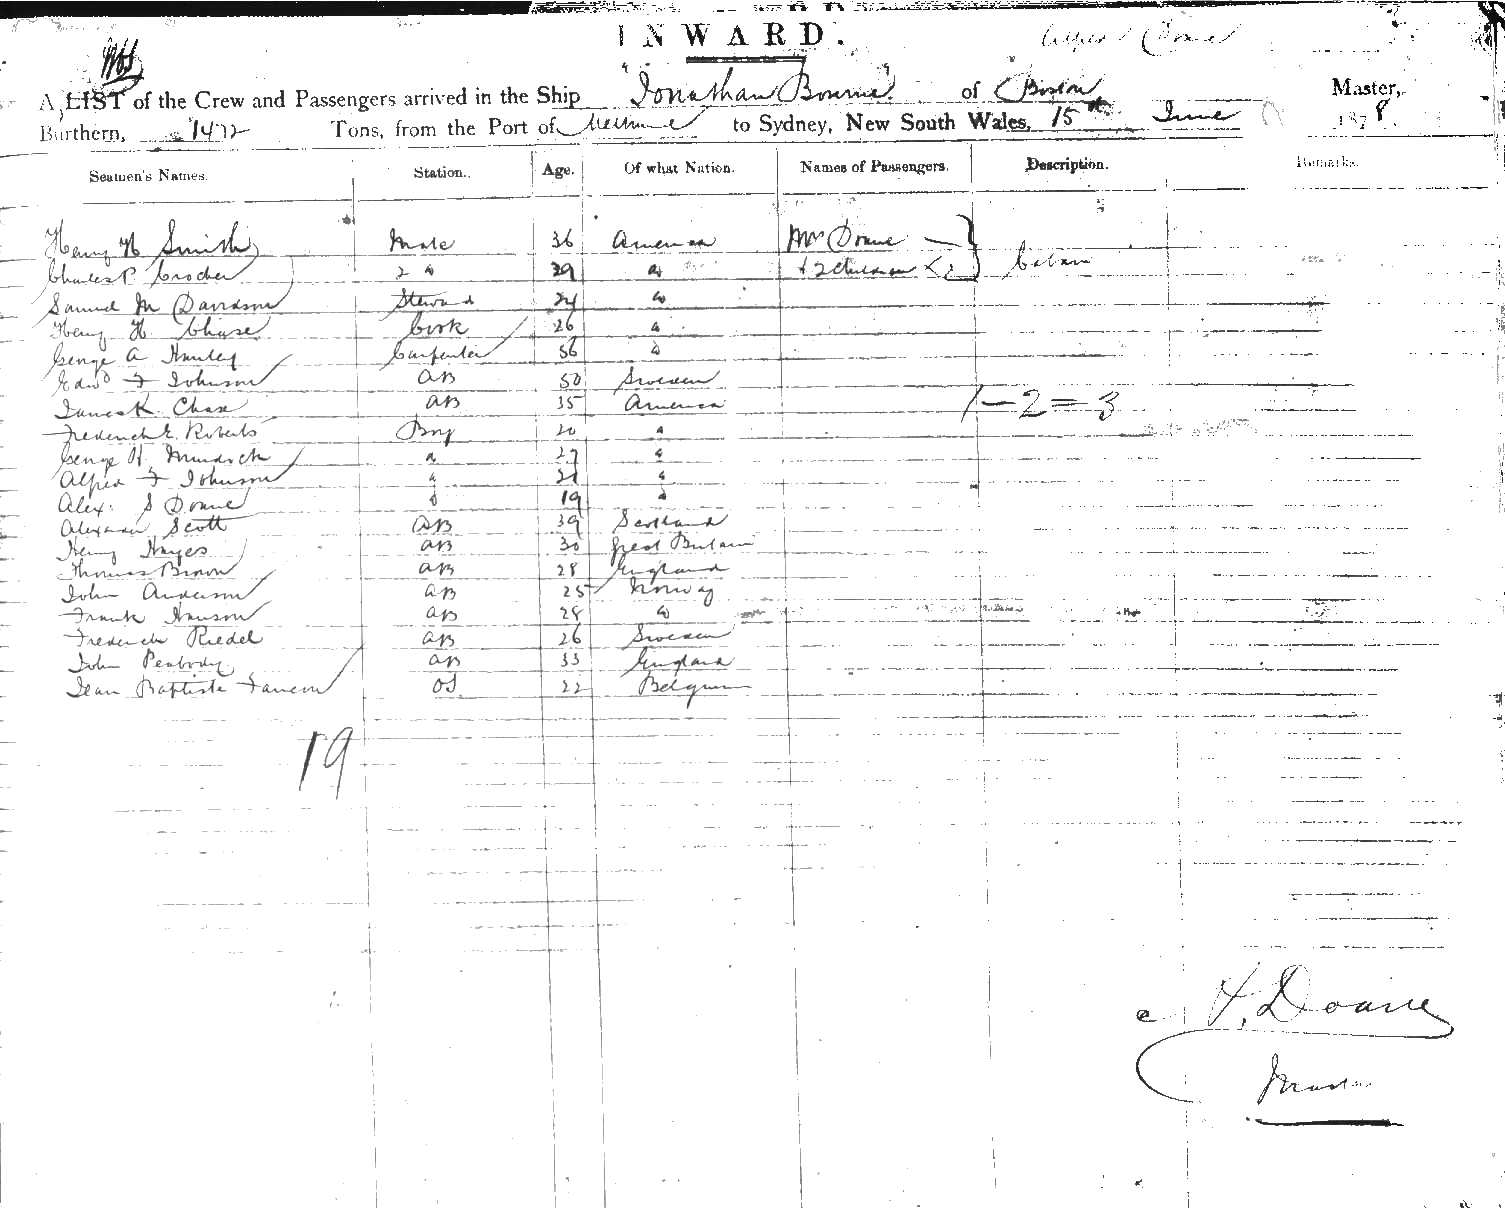 INWARD.
Alfred Doane
A LIST of the Crew and Passengers arrived in the Ship "Jonathan Bourne" of Boston Master,
Burthern, 1472 Tons, from the Port of to Sydney, New South Wales, 15th June 1878.
Seamen's Names. Station. Age. Of what Nation. Names of Passengers. Description. Remarks.
Henry H Smith Mate 36 America Mrs Doane
Charles P. Crocker 2 " 39 " + 2 Children Cabin
Samuel M Davidson Steward 24 "
Henry H Chase Cook 26 "
George A Carpenter 56 "
Edwd F Johnson AB 50 Sweden
James K Chase AB 35 America 1-2=3
Frederick E. Roberts Boy 20 "
George H Murdock " 27 "
Alfred F Johnson " 21 "
Alex. S Doane " 19 "
Alexander Scott AB 39 Scotland
Henry Hayes AB 30 Great Britain
Thomas Brown AB 28 England
John Anderson AB 25 Norway
Frank Hanson AB 28 "
Frederick Riedel AB 26 Sweden
John Peabody AB 33 England
Jean Baptiste OS 22 Belgium
19
A. Doane
Master